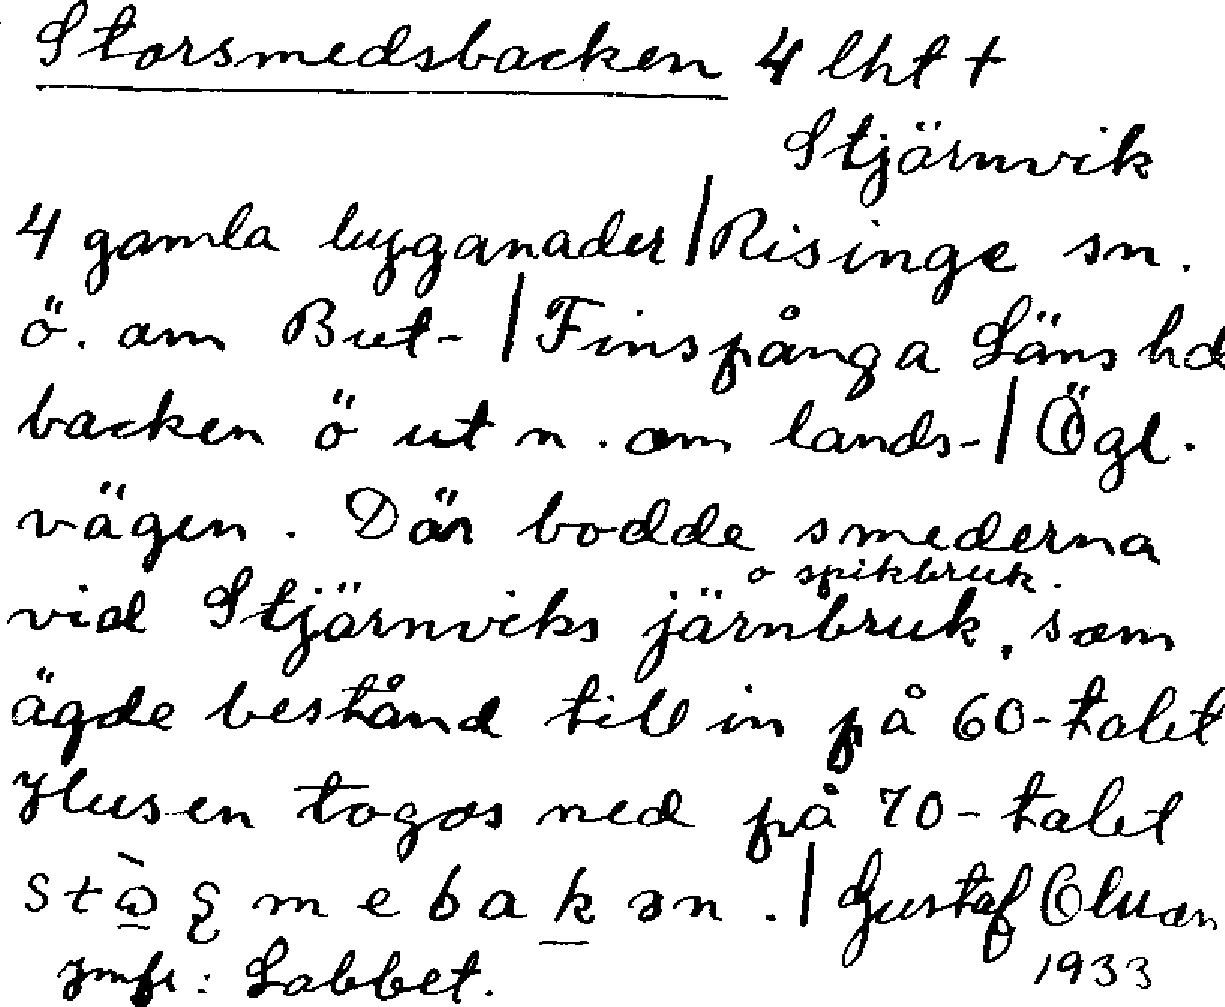 Storsmedsbacken 4 lht +
Stjärnvik
4 gamla byganader | Risinge sn.
ö. om But- | Finspånga Läns hd
backen ö ut n. om lands- | Ögl.
vägen. Där bodde smederna
o spikbruk.
vid Stjärnviks järnbruk, som
ägde bestånd till in på 60-talet
Husen togos ned på 70-talet
mebakən. | Gustaf
Jmfr: Labbet. 1933